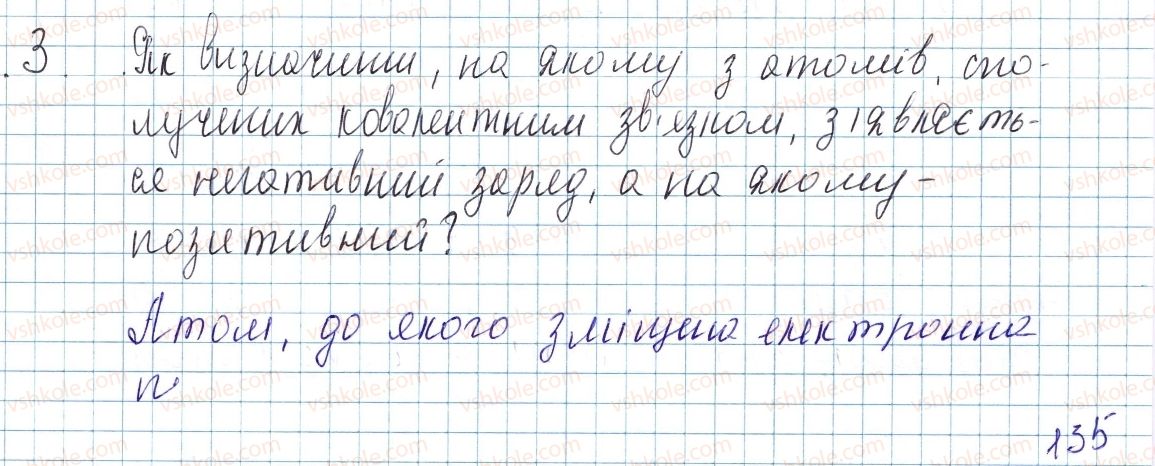 3. Як визначити, на якому з атомів, спо-
лучених ковалентним зв'язком, з'являєть-
ся негативний заряд, а на якому -
позитивний?
Атом, до якого зміщена електронна
п
135